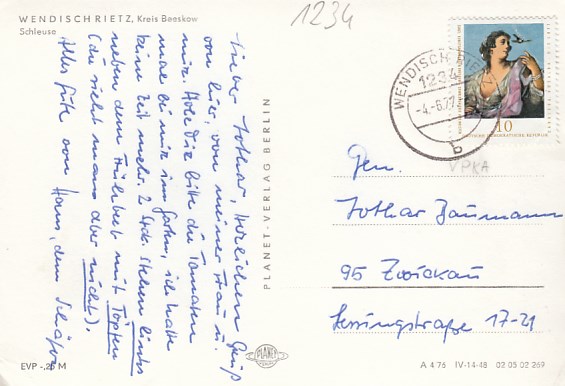 WENDISCH RIETZ, Kreis Beeskow
Schleuse
1234
Lieber Lothar, herzlichen Gruß
von hier, von meiner Frau u.
mir. Hole Dir bitte die Tomaten
mal bei mir im Garten, ich hatte
keine Zeit mehr. 2 Stck. stehen links
neben dem Frühbeet mit Töpfen
(die sieht man aber nicht).
Alles Gute von Hans, dem Schäfer
PLANET-VERLAG BERLIN
PLANET
WENDISCH RIETZ
1234
-4.-6.77
b
10
DEUTSCHE DEMOKRATISCHE REPUBLIK
VPKA
Gen.
Lothar Baumann
95 Zwickau
Lessingstraße 17-21
EVP -,25 M
A 4 76 IV-14-48 02 05 02 269